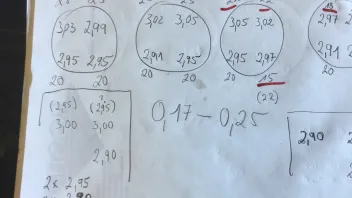 15
3,03 2,99 3,02 3,05 3,05 3,02 2,97
2,95 2,95 2,91 2,95 2,95 2,97 2,91
20 20 20 20 20 15
(22)
(2,95) (2,95)
3,00 3,00
0,17 - 0,25
2,90
2,90
2x 2,95
2,90